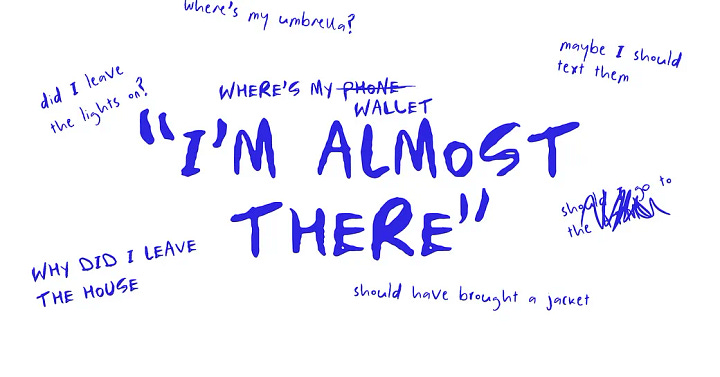 where's my umbrella?
maybe I should
text them
did I leave
the lights on?
WHERE'S MY PHONE
WALLET
"I'M ALMOST
THERE"
should I go to
the
WHY DID I LEAVE
THE HOUSE
should have brought a jacket